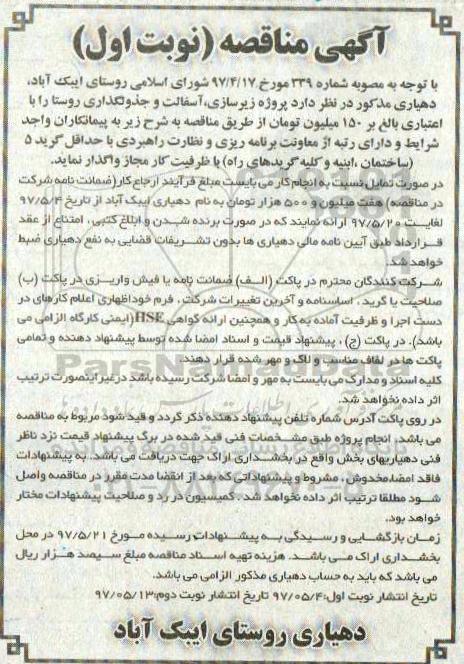 آگهی مناقصه (نوبت اول)
با توجه به مصوبه شماره ۳۳۹ مورخ ۹۷/۴/۱۷ شورای اسلامی روستای ایبک آباد،
دهیاری مذکور در نظر دارد پروژه زیرسازی،آسفالت و جدولگذاری روستا را با
اعتباری بالغ بر ۱۵۰ میلیون تومان از طریق مناقصه به شرح زیر به پیمانکاران واجد
شرایط و دارای رتبه از معاونت برنامه ریزی و نظارت راهبردی با حداقل گرید ۵
(ساختمان ،ابنیه و کلیه گریدهای راه) با ظرفیت کار مجاز واگذار نماید.
در صورت تمایل نسبت به انجام کار می بایست مبلغ فرآیند ارجاع کار(ضمانت نامه شرکت
در مناقصه) هفت میلیون و ۵۰۰ هزار تومان به نام دهیاری ایبک آباد از تاریخ ۹۷/۵/۴
لغایت ۹۷/۵/۲۰ ارائه نمایند که در صورت برنده شدن و ابلاغ کتبی ، امتناع از عقد
قرارداد طبق آیین نامه مالی دهیاری ها بدون تشریفات قضایی به نفع دهیاری ضبط
خواهد شد.
شرکت کنندگان محترم در پاکت (الف) ضمانت نامه یا فیش واریزی در پاکت (ب)
صلاحیت یا گرید ، اساسنامه و آخرین تغییرات شرکت ، فرم خوداظهاری اعلام کارهای در
دست اجرا و ظرفیت آماده به کار و همچنین ارائه گواهی HSE(ایمنی کارگاه الزامی می
باشد). در پاکت (ج) ، پیشنهاد قیمت و اسناد امضا شده توسط پیشنهاد دهنده و تمامی
پاکت ها در لفاف مناسب و لاک و مهر شده قرار دهند.
کلیه اسناد و مدارک می بایست به مهر و امضا شرکت رسیده باشد درغیر اینصورت ترتیب
اثر داده نخواهد شد.
در روی پاکت آدرس شماره تلفن پیشنهاد دهنده ذکر گردد و قید شود مربوط به مناقصه
می باشد. انجام پروژه طبق مشخصات فنی قید شده در برگ پیشنهاد قیمت نزد ناظر
فنی دهیاریهای بخش واقع در بخشداری اراک جهت دریافت می باشد. به پیشنهادات
فاقد امضا،مخدوش ، مشروط و پیشنهاداتی که بعد از انقضا مدت مقرر در مناقصه واصل
شود مطلقا ترتیب اثر داده نخواهد شد . کمیسیون در رد و صلاحیت پیشنهادات مختار
خواهد بود.
زمان بازگشایی و رسیدگی به پیشنهادات رسیده مورخ ۹۷/۵/۲۱ در محل
بخشداری اراک می باشد. هزینه تهیه اسناد مناقصه مبلغ سیصد هزار ریال
می باشد که باید به حساب دهیاری مذکور الزامی می باشد.
تاریخ انتشار نوبت اول:۹۷/۰۵/۴ تاریخ انتشار نوبت دوم:۹۷/۰۵/۱۳
دهیاری روستای ایبک آباد
ParsNamadData